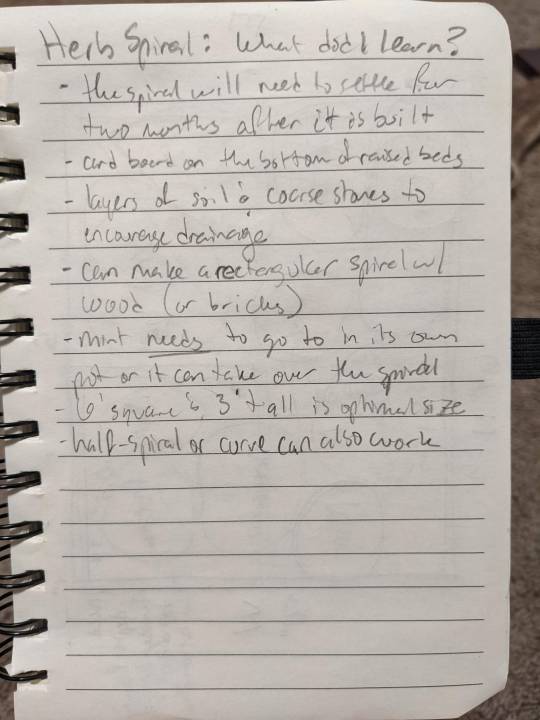 Herb Spiral: What did I learn?
- the spiral will need to settle for
two months after it is built
- cardboard on the bottom of raised beds
- layers of soil & coarse stones to
encourage drainage
- can make a rectangular spiral w/
wood (or bricks)
- mint needs to go to in its own
pot or it can take over the spiral
- 6' square & 3' tall is optimal size
- half-spiral or curve can also work